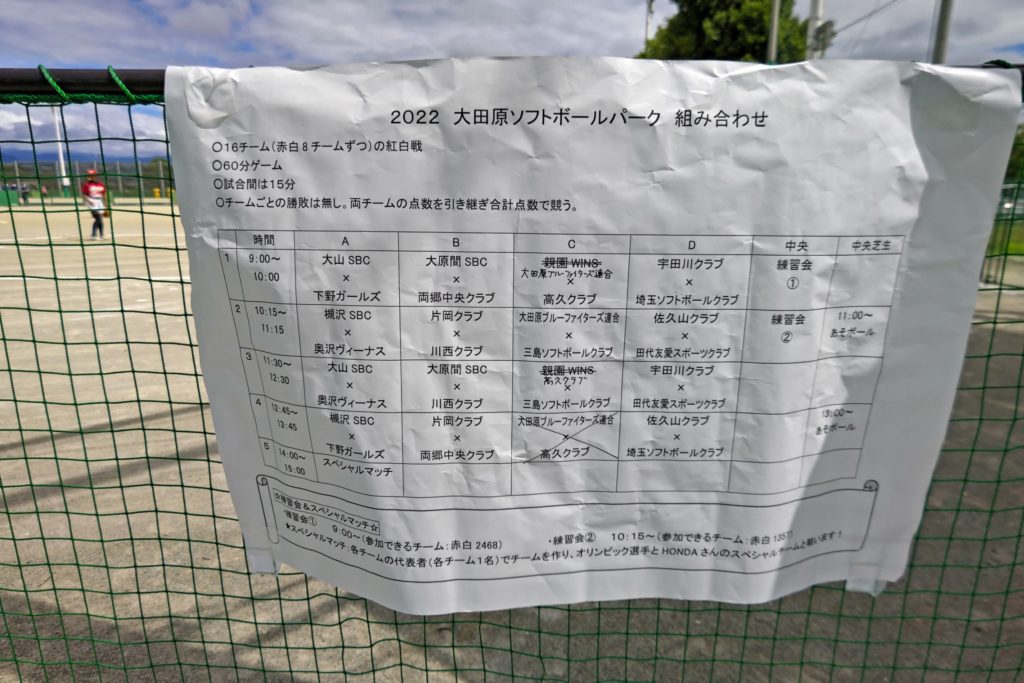 2022 大田原ソフトボールパーク 組み合わせ
〇16チーム(赤白8チームずつ)の紅白戦
〇60分ゲーム
〇試合間は15分
〇チームごとの勝敗は無し。両チームの点数を引き継ぎ合計点数で競う。
時間 A B C D 中央 中央芝生
1 9:00～10:00 大山SBC × 下野ガールズ 大原間SBC × 両郷中央クラブ 親園WINS 大田原ブルーファイターズ連合 × 高久クラブ 宇田川クラブ × 埼玉ソフトボールクラブ 練習会①
2 10:15～11:15 槻沢SBC × 奥沢ヴィーナス 片岡クラブ × 川西クラブ 大田原ブルーファイターズ連合 × 三島ソフトボールクラブ 佐久山クラブ × 田代友愛スポーツクラブ 練習会② 11:00～あそボール
3 11:30～12:30 大山SBC × 奥沢ヴィーナス 大原間SBC × 川西クラブ 親園WINS 高久クラブ × 三島ソフトボールクラブ 宇田川クラブ × 田代友愛スポーツクラブ
4 12:45～13:45 槻沢SBC × 下野ガールズ 片岡クラブ × 両郷中央クラブ 大田原ブルーファイターズ連合 × 高久クラブ 佐久山クラブ × 埼玉ソフトボールクラブ 13:00～あそボール
5 14:00～15:00 スペシャルマッチ
☆練習会&スペシャルマッチ☆
・練習会① 9:00～(参加できるチーム:赤白2468) ・練習会② 10:15～(参加できるチーム:赤白1357)
★スペシャルマッチ:各チームの代表者(各チーム1名)でチームを作り、オリンピック選手とHONDAさんのスペシャルチームと戦います!